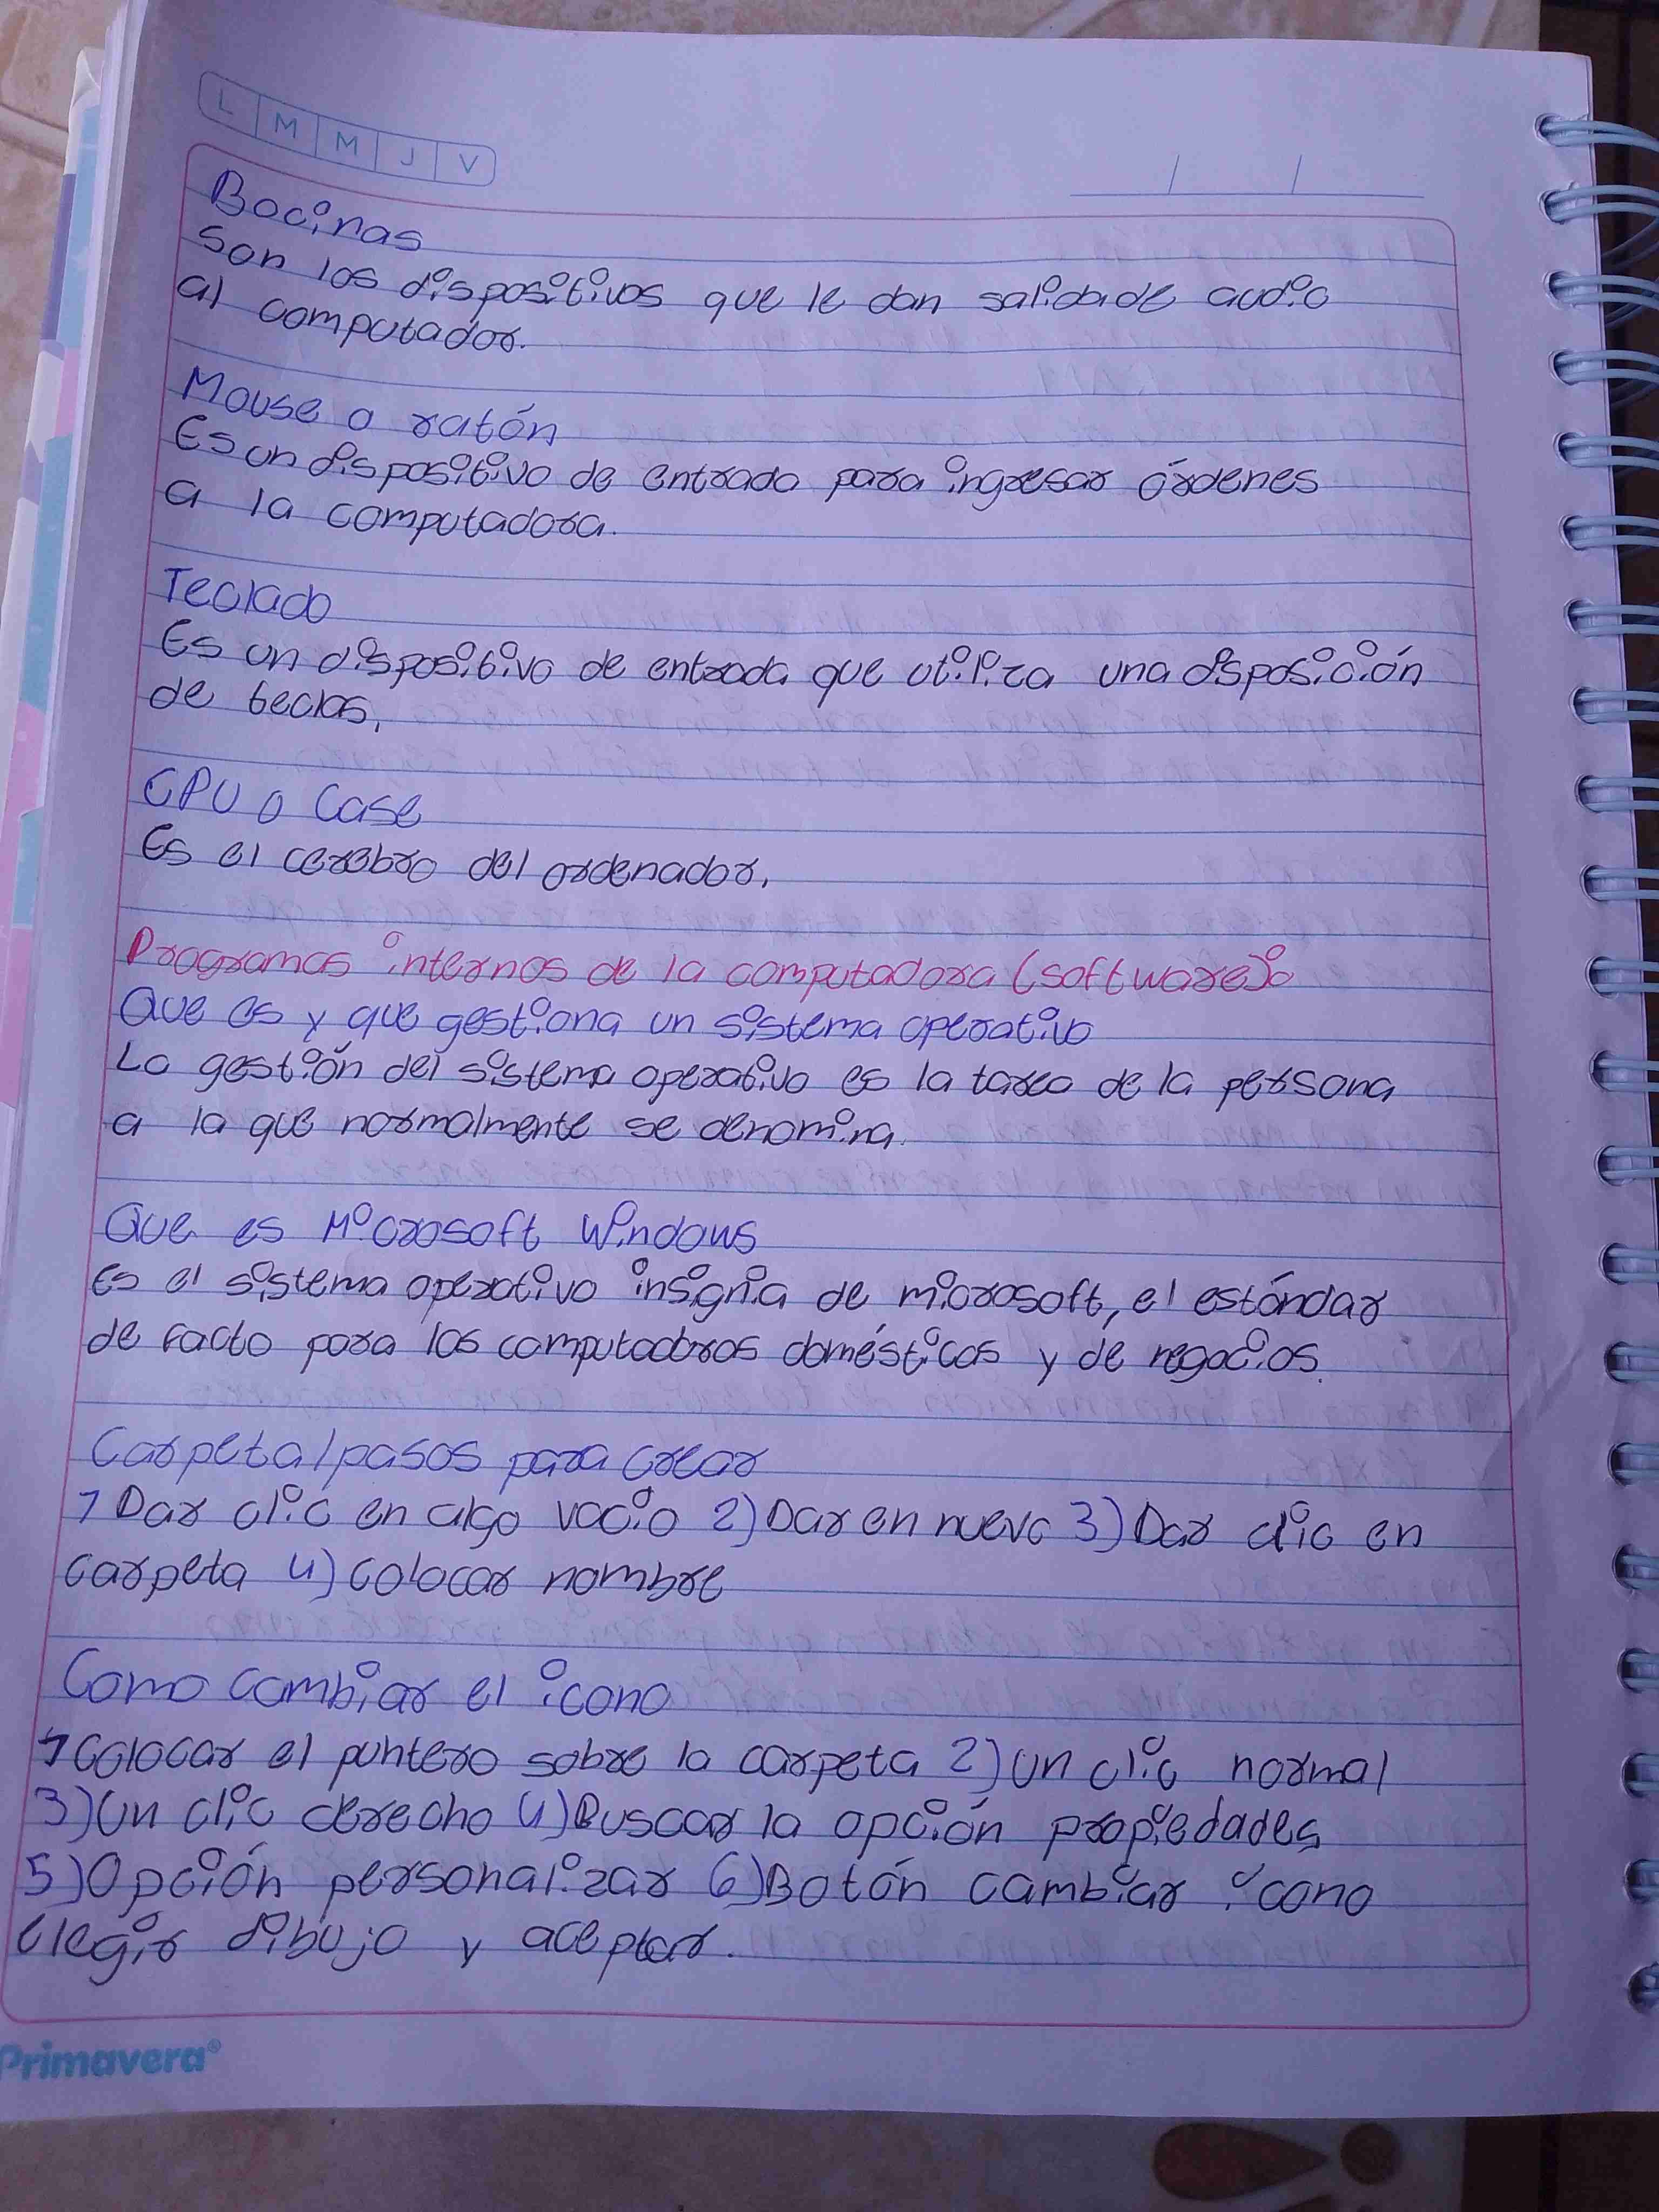 L M M J V
Bocinas
Son los dispositivos que le dan salida de audio
al computador.
Mouse o ratón
Es un dispositivo de entrada para ingresar órdenes
a la computadora.
Teclado
Es un dispositivo de entrada que utiliza una disposición
de teclas,
CPU o Case
Es el cerebro del ordenador,
Programas internos de la computadora (software):
Que es y que gestiona un sistema operativo
La gestión del sistema operativo es la tarea de la persona
a la que normalmente se denomina.
Que es Microsoft Windows
Es el sistema operativo insignia de microsoft, el estándar
de facto para las computadoras domésticas y de negocios.
Carpeta/pasos para crear
1 Dar clic en algo vacio 2) Dar en nuevo 3) Dar clic en
carpeta 4) Colocar nombre
Como cambiar el icono
1 Colocar el puntero sobre la carpeta 2) Un clic normal
3) Un clic derecho 4) Buscar la opción propiedades
5) Opción personalizar 6) Botón cambiar icono
elegir dibujo y aceptar.
Primavera®